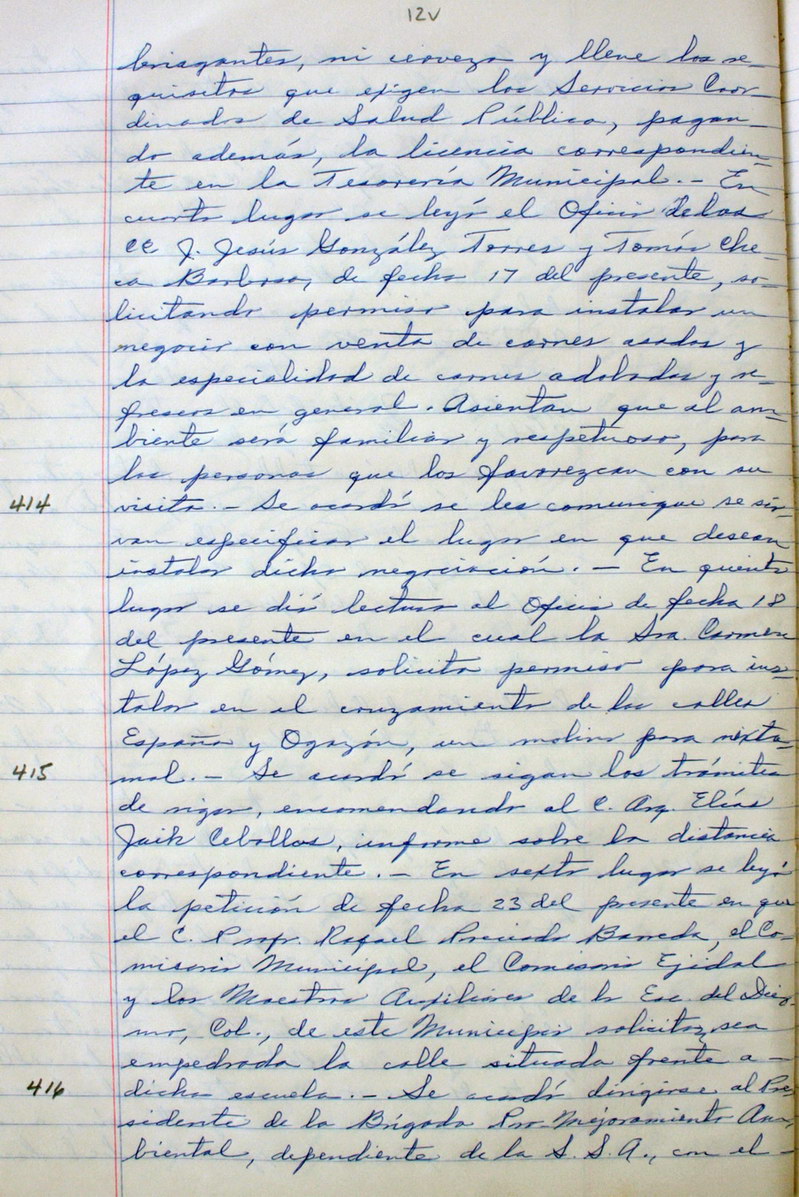 12v
briagantes, ni cerveza y llene los re-
quisitos que exigen los Servicios Coor
dinados de Salud Pública, pagan-
do además, la licencia correspondien-
te en la Tesorería Municipal.- En
cuarto lugar se leyó el Oficio de los
CC J. Jesús González Torres y Tomás Che-
ca Barbosa, de fecha 17 del presente, so-
licitando permiso para instalar un
negocio con venta de carnes asadas y
la especialidad de carnes adobadas y re-
frescos en general. Asientan que el am-
biente será familiar y respetuoso, para
las personas que los favorezcan con su
414 visita.- Se acordó se les comunique se sir-
van especificar el lugar en que desean
instalar dicha negociación.- En quinto
lugar se dió lectura al Oficio de fecha 18
del presente en el cual la Sra. Carmen
López Gómez, solicita permiso para ins-
talar en el cruzamiento de las calles
España y Ogazón, un molino para nixta-
415 mal.- Se acordó se sigan los trámites
de rigor, encomendando al C. Arq. Elías
Jaik Ceballos, informe sobre la distancia
correspondiente.- En sexto lugar se leyó
la petición de fecha 23 del presente en que
el C. Profr. Rafael Preciado Barreda, el Co-
misario Municipal, el Comisario Ejidal
y los Maestros Auxiliares de la Esc. del Diez-
mo, Col., de este Municipio solicitan sea
empedrada la calle situada frente a-
416 dicha escuela.- Se acordó dirigirse al Pre
sidente de la Brigada Pro-Mejoramiento Am-
biental, dependiente de la S. S. A., con el-